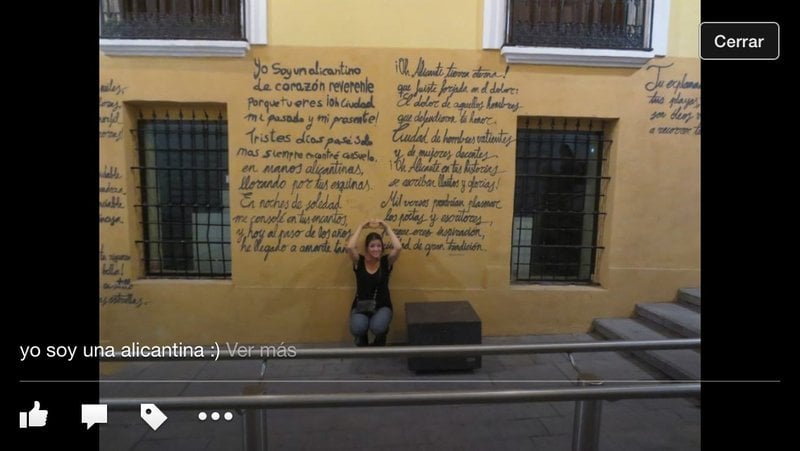 Cerrar
Yo Soy un alicantino
de corazón reverente
Porque tu eres ¡Oh! Ciudad
mi pasado y mi presente!
Tristes días pasé solo
mas siempre encontré consuelo,
en manos alicantinas,
llorando por tus esquinas.
En noches de soledad
me consolé en tus encantos,
y hoy al paso de los años
he llegado a amarte
¡Oh! Alicante tierra eterna!
que fuiste forjada en el dolor:
El dolor de aquellos hombres
que defendieron tu honor.
Ciudad de hombres valientes
y de mujeres decentes
¡Oh Alicante en tus historias
se escriben llantos y glorias!
Mil versos podrían plasmar
los poetas y escritores,
inspiración,
de gran tradición.
Tu
tus playas,
a recorrer
yo soy una alicantina :) Ver más